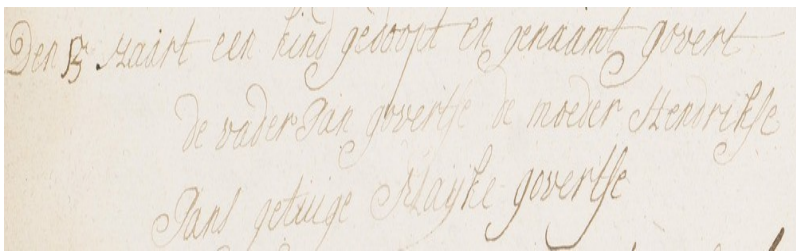 Den 13 Maart een kind gedoopt en genaamt govert
de vader Jan govertse de moeder Hendrikse
Jans getuige Mayke govertse